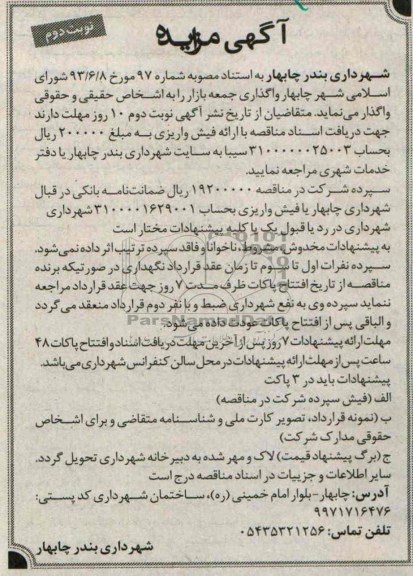 آگهی مزایده
نوبت دوم
شهرداری بندر چابهار به استناد مصوبه شماره ۹۷ مورخ ۹۳/۶/۸ شورای
اسلامی شهر چابهار واگذاری جمعه بازار را به اشخاص حقیقی و حقوقی
واگذار می‌نماید. متقاضیان از تاریخ نشر آگهی نوبت دوم ۱۰ روز مهلت دارند
جهت دریافت اسناد مناقصه با ارائه فیش واریزی به مبلغ ۲۰۰۰۰۰ ریال
بحساب ۳۱۰۰۰۰۰۰۲۵۰۰۳ سیبا به سایت شهرداری بندر چابهار یا دفتر
خدمات شهری مراجعه نمایید.
سپرده شرکت در مناقصه ۱۹۲۰۰۰۰۰ ریال ضمانت‌نامه بانکی در قبال
شهرداری چابهار یا فیش واریزی بحساب ۳۱۰۰۰۰۱۶۲۹۰۰۱ شهرداری
شهرداری در رد یا قبول یک یا کلیه پیشنهادات مختار است
به پیشنهادات مخدوش مشروط، ناخوانا و فاقد سپرده ترتیب اثر داده نمی‌شود.
سپرده نفرات اول تا سوم تا زمان عقد قرارداد نگهداری در صورتیکه برنده
مناقصه از تاریخ افتتاح پاکات ظرف مدت ۷ روز جهت عقد قرارداد مراجعه
ننماید سپرده وی به نفع شهرداری ضبط و با نفر دوم قرارداد منعقد می‌گردد
و الباقی پس از افتتاح پاکات عودت داده می‌شود.
مهلت ارائه پیشنهادات ۷ روز پس از آخرین مهلت دریافت اسناد و افتتاح پاکات ۴۸
ساعت پس از مهلت ارائه پیشنهادات در محل سالن کنفرانس شهرداری می‌باشد.
پیشنهادات باید در ۳ پاکت
الف (فیش سپرده شرکت در مناقصه)
ب (نمونه قرارداد، تصویر کارت ملی و شناسنامه متقاضی و برای اشخاص
حقوقی مدارک شرکت)
ج (برگ پیشنهاد قیمت) لاک و مهر شده به دبیرخانه شهرداری تحویل گردد.
سایر اطلاعات و جزییات در اسناد مناقصه درج است
آدرس: چابهار-بلوار امام خمینی (ره)، ساختمان شهرداری کد پستی:
۹۹۷۱۷۱۶۴۷۶
تلفن تماس: ۰۵۴۳۵۳۲۱۲۵۶
شهرداری بندر چابهار